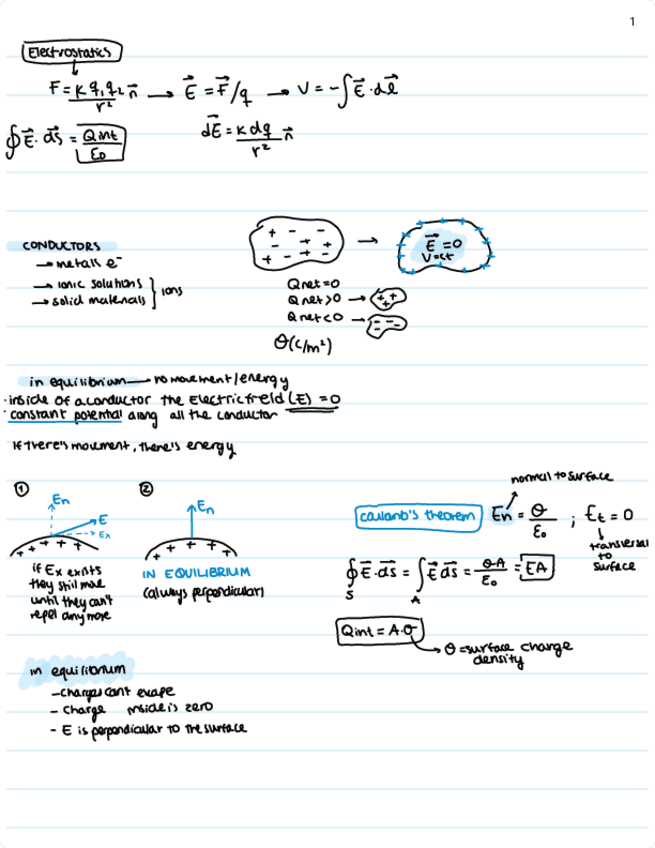 1
Electrostatics
F = K q₁q₂ n⃗ / r² → E⃗ = F⃗/q → V = -∫E⃗·dl⃗
∮E⃗·ds⃗ = Qint / ε₀
dE⃗ = K dq / r² n⃗
CONDUCTORS
→ metall e⁻
→ ionic solutions
→ solid materials } ions
+ - - - + + - + + - +
→
E⃗ = 0
V = ct
Qnet = 0
Qnet > 0 → + + +
Qnet < 0 → - - -
θ (C/m²)
in equilibrium → no movement/energy
· inside of a conductor the Electric field (E) = 0
· constant potential along all the conductor
If there's movement, there's energy
① En E Ex
+ + + + +
if Ex exists
they still move
until they can't
repel anymore
② En
+ + + + +
IN EQUILIBRIUM
(always perpendicular)
normal to surface
coulomb's theorem En = θ / ε₀ ; Et = 0
transversal
to
surface
∮E⃗·ds⃗ = ∫E⃗ ds⃗ = θA / ε₀ = EA
S A
Qint = A·σ
→ θ = surface charge
density
in equilibrium
- charges cant escape
- charge inside is zero
- E is perpendicular to the surface